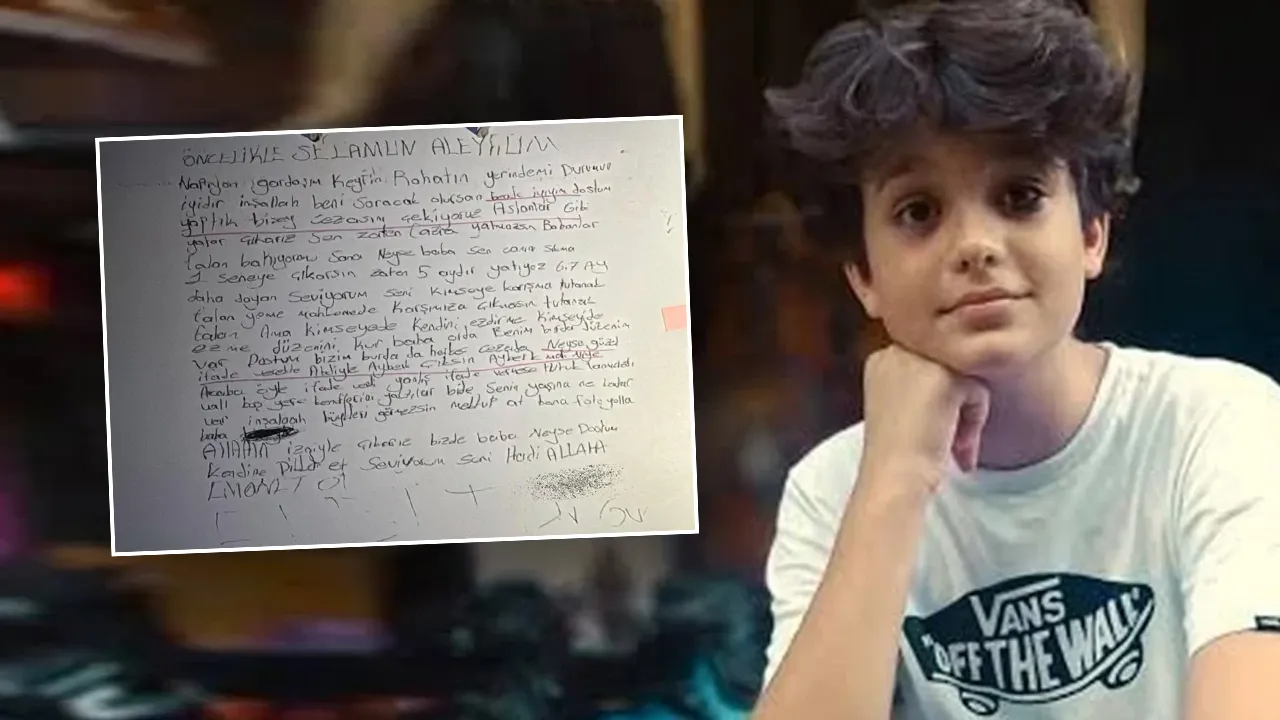 ÖNCELİKLE SELAMUN ALEYKÜM
Napıjon gardaşım Keyfin Rahatın yerindemi Durumun
iyidir inşallah beni Soracak olursan bende iyiyim dostum
yaptık bizey cezasını çekiyoruz Aslanlar Gibi
yatar çıkarız Sen zaten fazla yatmazsın Babanlar
falan bakıyorsa Sana Neyse baba sen canını Sıkma
1 Seneye çıkarsın zaten 5 aydır yatıyoz 6.7 AY
daha dayan Seviyorum Seni Kimseye karışma tutanak
falan yeme mahkemede Karşımıza çıkmasın tutanak
falan Ama kimseyede Kendini ezdirme Kimseyide
ezme düzenini Kur baba orda Benim burda düzenim
var Dostum bizim burda da Neyse güzel
ifade verelim Abi Ayberk çıksın Ayberk
öyle ifade yanlış ifade
boş yere bide Senin yaşına ne kadar
ver inşalaah gömezsin mektup at bana foto yolla
baba
ALLAHIN izniyle çıkarız bizde baba Neyse Dostum
Kendine Dikkat et Seviyorum Seni Hadi ALLAHA
EMANET OL
VANS
"OFF THE WALL"